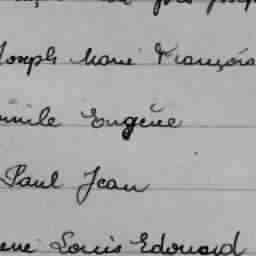 Joseph Marie François
Emile Eugène
Paul Jean
Louis Edouard